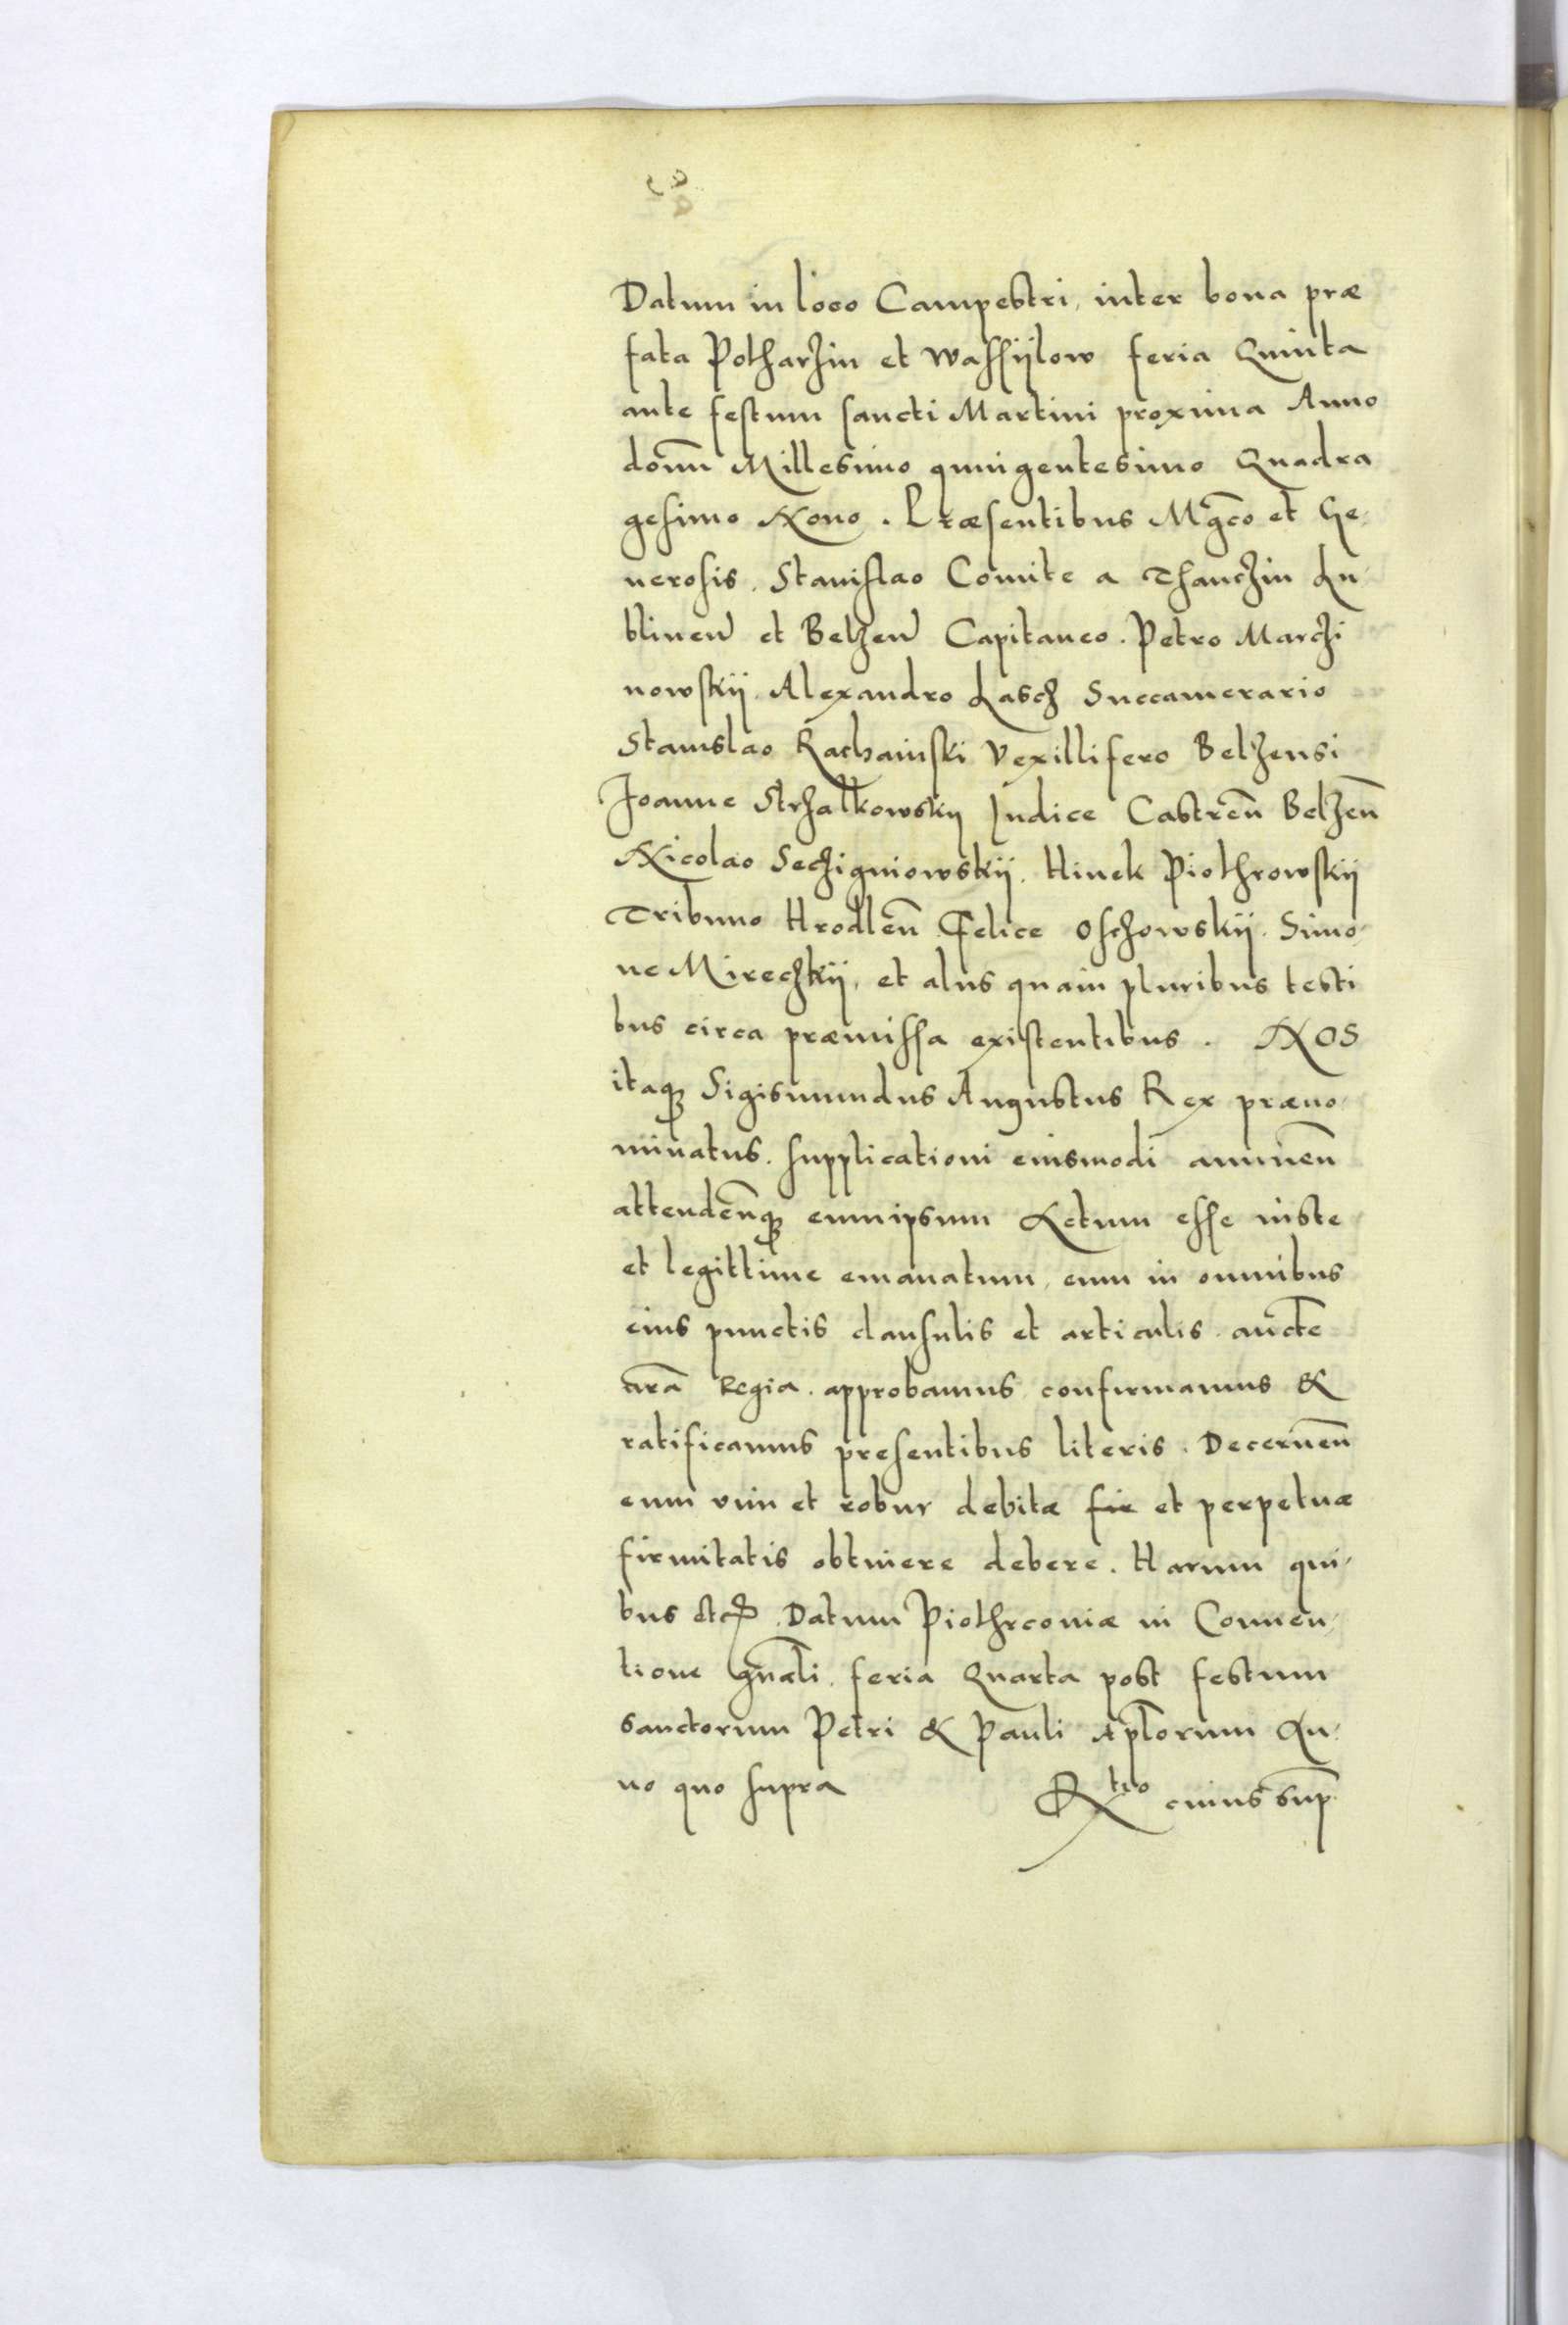 Datum in loco Campestri, inter bona præ
fata Potharzin et Wassijlow feria Quinta
ante festum sancti Martini proxima Anno
domῑ Millesimo quingentesimo Quadra
gesimo Nono. Præsentibus Mgc̄o et Ge-
nerosis. Stanislao Comite a Thanczin Lu-
blinen̄ et Belzen̄ Capitaneo. Petro Marczi
nowskij. Alexandro Lascz Succamerario
Stanislao Rachainski Vexillifero Belzensi
Joanne Strzalkowskij Judice Castren̄ Belzen̄
Nicolao Seczigniowskij. Hinek Piothrowskij
Tribuno Hrodlen̄ Felice Osczowskij. Simo-
ne Mireczkij, et alijs quam pluribus testi
bus circa præmissa existentibus. NOS
itaqꝫ Sigismundus Augustus Rex præno-
minatus. supplicationi eiusmodi annuen̄
attenden̄qꝫ eumipsum Actum esse iuste
et legittime emanatum, eum in omnibus
eius punctis clausulis et articulis. auc̄te
nr̄a Regia. approbamus confirmamus &
ratificamus presentibus literis. Decernen̄
eum vim et robur debitæ fir et perpetuæ
firmitatis obtinere debere. Harum qui-
bus etc. Datum Piothrconiæ in Conuen-
tione gn̄ali. feria Quarta post festum
sanctorum Petri & Pauli Apl̄orum An-
no quo supra
Rtio cuius sup̄